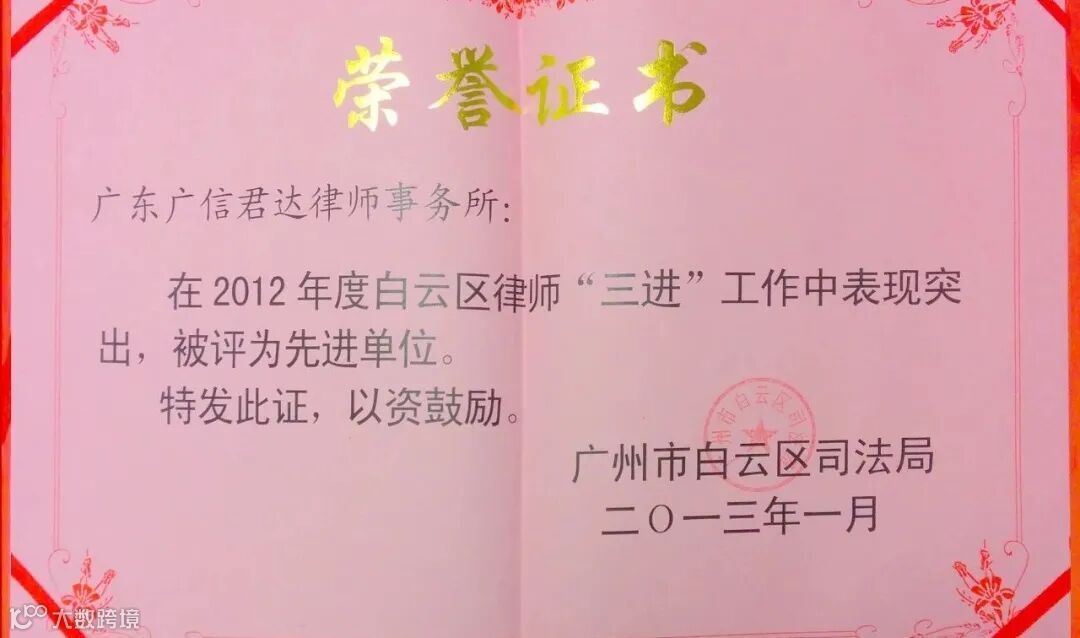 荣誉证书
广东广信君达律师事务所:
在2012年度白云区律师“三进”工作中表现突
出，被评为先进单位。
特发此证，以资鼓励。
广州市白云区司法局
广州市白云区司法局
二〇一三年一月
大数跨境